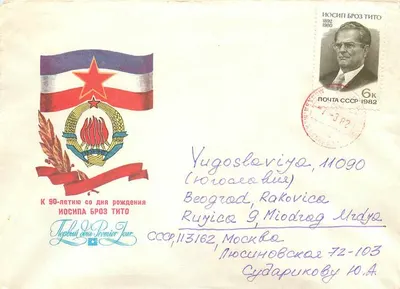 ИОСИП БРОЗ ТИТО
1892
1980
6к
ПОЧТА СССР • 1982
К 90-летию со дня рождения
ИОСИПА БРОЗ ТИТО
Первый день Premier Jour
Yugoslaviya, 11090
(Югославия)
Beograd, Rakovica
Ruyica 9, Miodrag Mrdya
СССР, 113162, Москва
Люсиновская 72-103
Сударикову Ю.А.